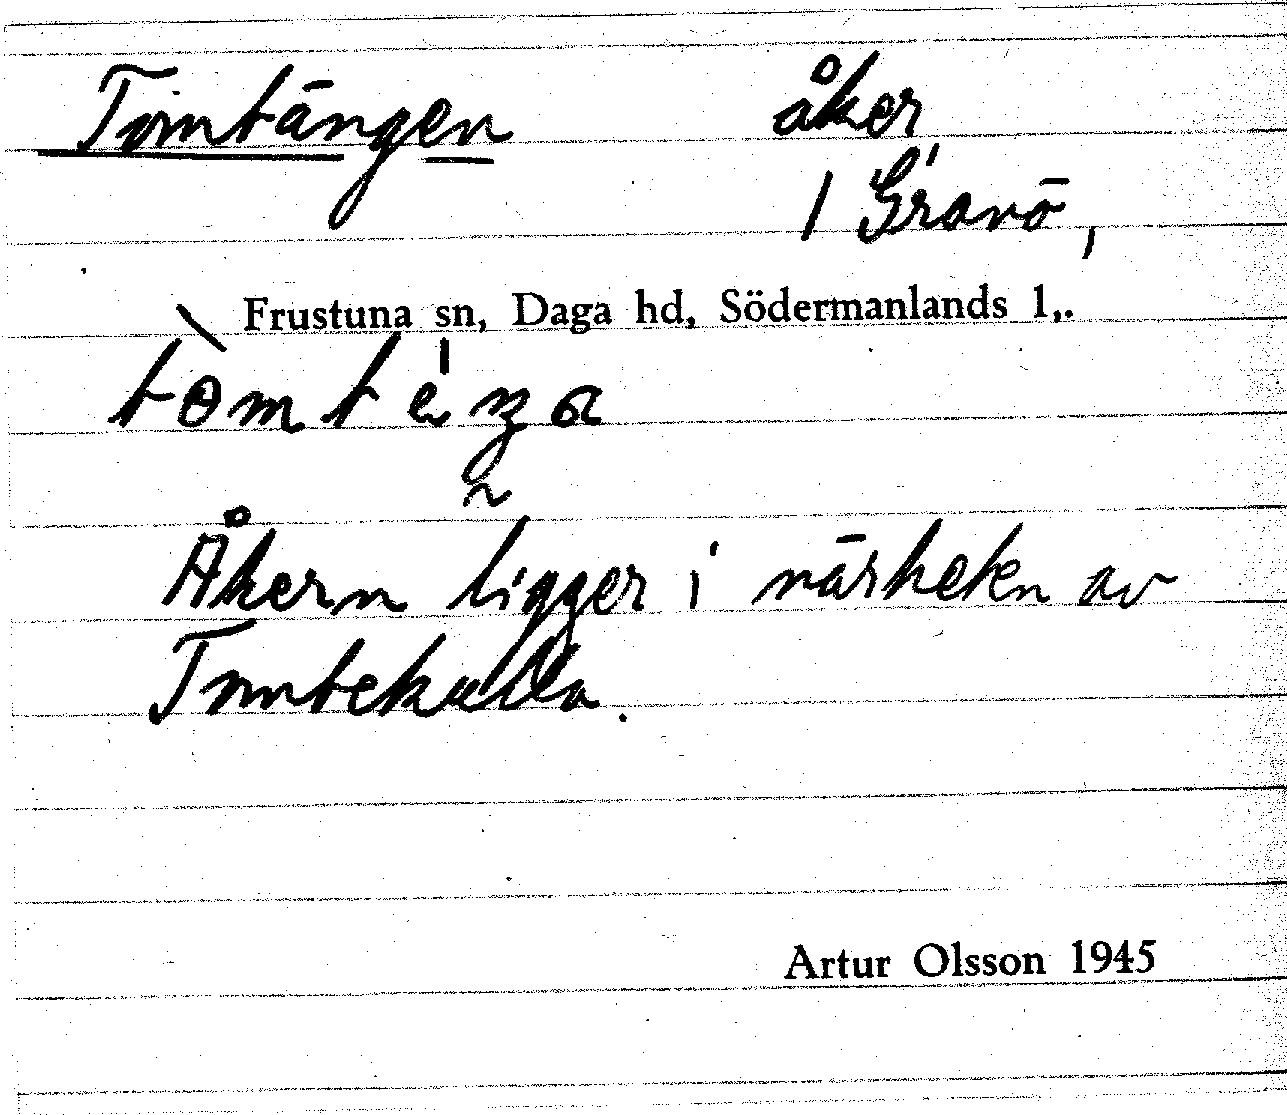 Tomtängen åker
1 Gravö,
Frustuna sn, Daga hd, Södermanlands l,.
Åkern ligger i närheten av
Tomtekulla.
Artur Olsson 1945